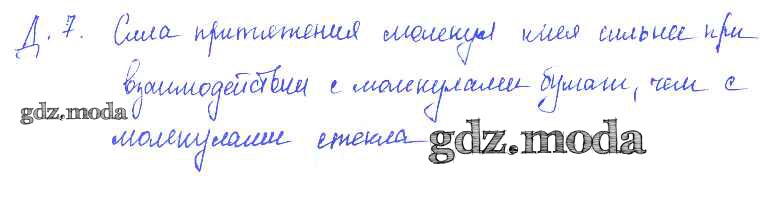 Д. 7. Сила притяжения молекул клея сильнее при
взаимодействии с молекулами бумаги, чем с
gdz.moda
молекулами стекла gdz.moda